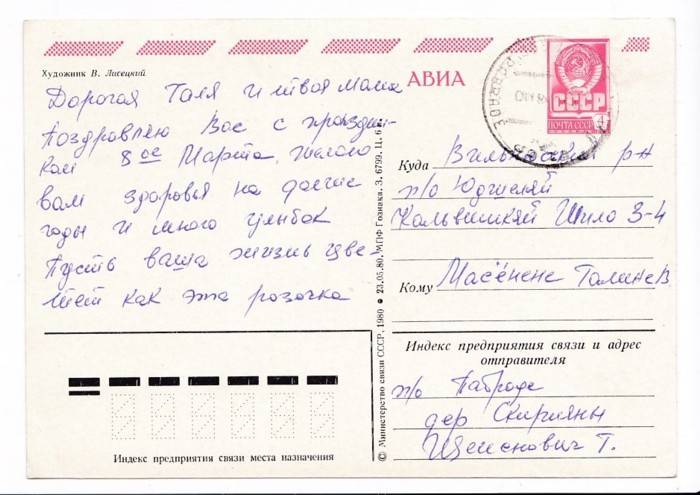 Художник В. Лисецкий
АВИА
СССР
ПОЧТА СССР
Дорогая Галя и твоя мама
Поздравляю Вас с праздни-
ком 8ое Марта, желаю
вам здоровья на долгие
годы и много улыбок
Пусть ваша жизнь цве-
тёт как эта розочка
© Министерство связи СССР, 1980 • 23.05.80. МПФ Гознака. З. 6799. Ц. 6 к.
Куда Вильнюсский р-н
п/о Юдшеляй
Кальвишкяй Шило 3-4
Кому Масенене Галине В
Индекс предприятия связи и адрес
отправителя
п/о Пабраде
дер Скирляны
Щенснович Т.
Индекс предприятия связи места назначения